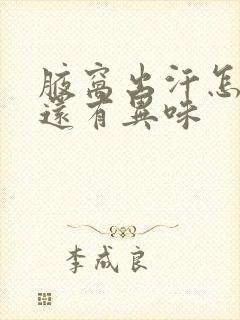 腋窝出汗怎
还有异味
李成良